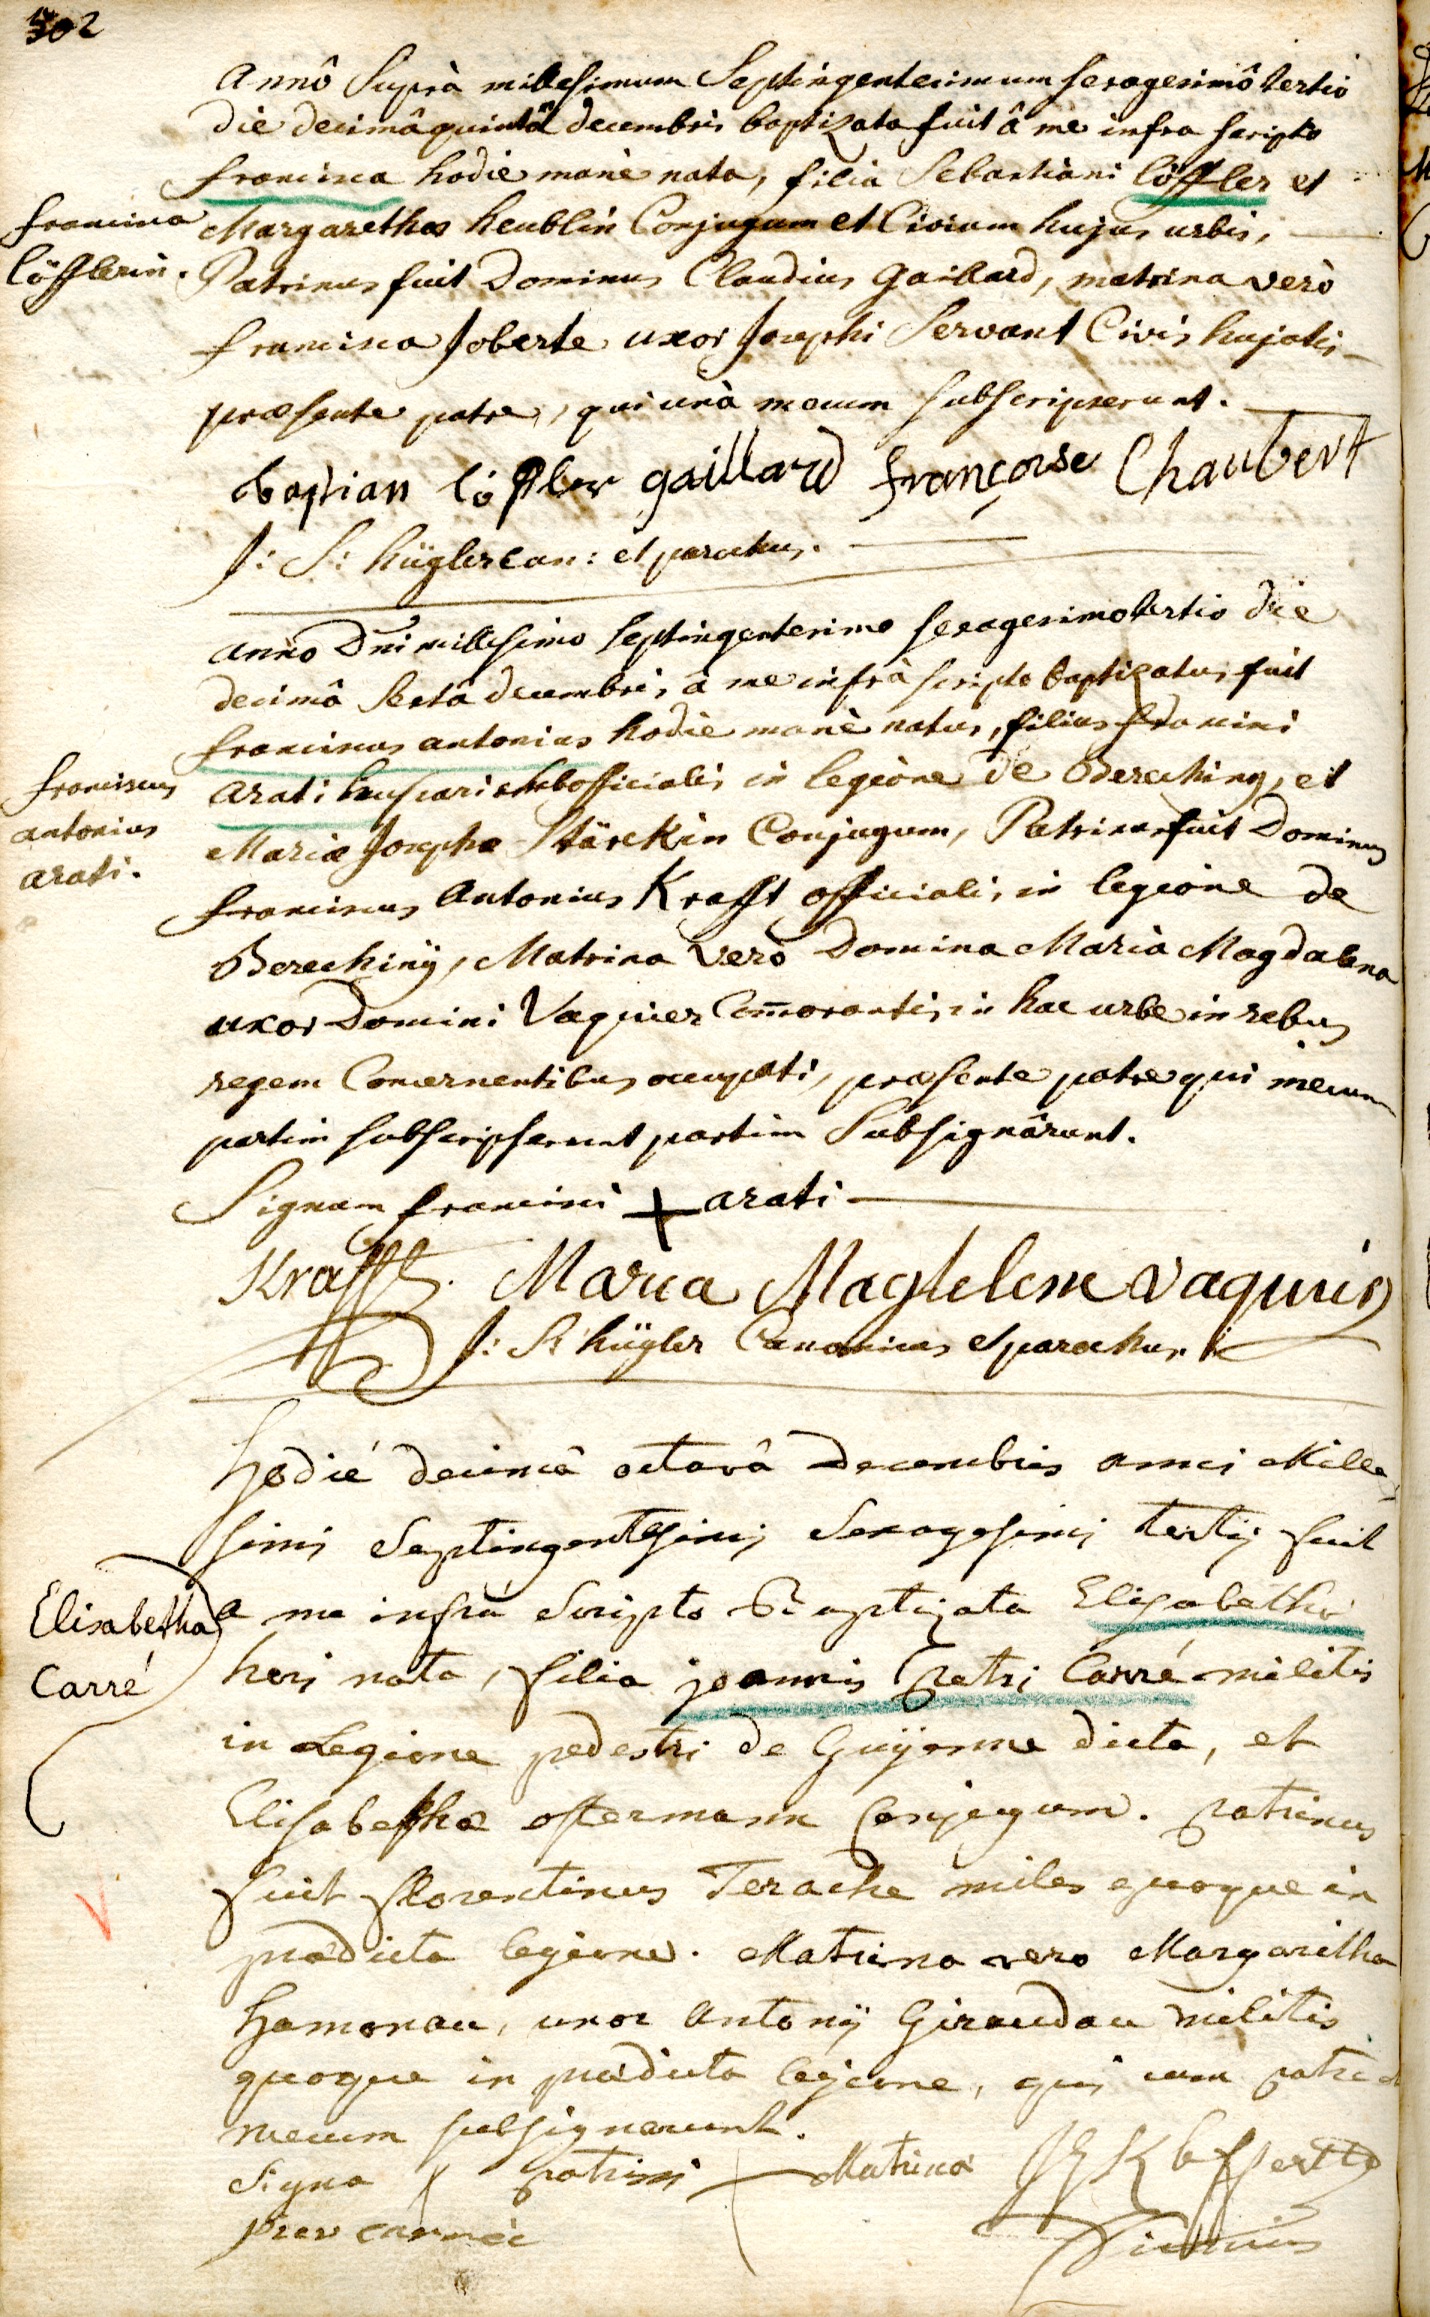 302
Annô Suprà millesimum Septingentesimum sexagesimô tertio
die decimâ quintâ decembris baptizata fuit â me infra scripto
francisca hodie manè nata, filia Sebastiani löffler et
francisca
löfflerin.
Margarethae heublin Conjugum et Civium hujus urbis,
Patrinus fuit Dominus Claudius Gaillard, matrina verò
francisca Joberte uxor Josephi Servant Civis hujatis
præsente patre, qui unà mecum subscripserunt.
bastian löffler gaillard françoise Chaubert
J: S: hügler can: et parochus.
Anno Dni millesimo septingentesimo sexagesimo tertio die
decimâ Sextâ decembris, à me infrà scripto baptizatus fuit
franciscus antonius hodiè manè natus, filius francisci
franciscus
antonius
arati.
Arati subofficialis in legione de Berechiny, et
Mariæ Josephæ Stärckin Conjugum, Patrinus fuit Dominus
franciscus Antonius Krafft officialis in legione de
Berechinÿ, Matrina verò Domina Maria Magdalena
uxor Domini Vaquier Com̄orantis in hac urbe in rebus
regem Concernentibus occupati, præsente patre qui mecum
partim subscripserunt partim Subsignârunt.
Signum francisci + arati
Krafft. Maria Magdelene vaquier
J: S: hügler Canonicus et parochus
Hodié decimâ octavâ Decembris anni Mille
simi Septingentesimi Sexagesimi tertij fuit
Elisabetha
Carré
a me infrà Scripto Baptizata Elisabetha
heri nata, filia joannis petri Carré militis
in Legione pedestri de Guÿenne dicta, et
Elisabethæ ostermann Conjugum. patrinus
fuit florentinus Terache miles quoque in
prædicta legione. Matrina vero Margaritha
Hamonau, uxor Antonÿ Giraudau militis
quoque in prædicta legione, qui cum patre et
mecum subsignarunt.
Signa patrini Matrina